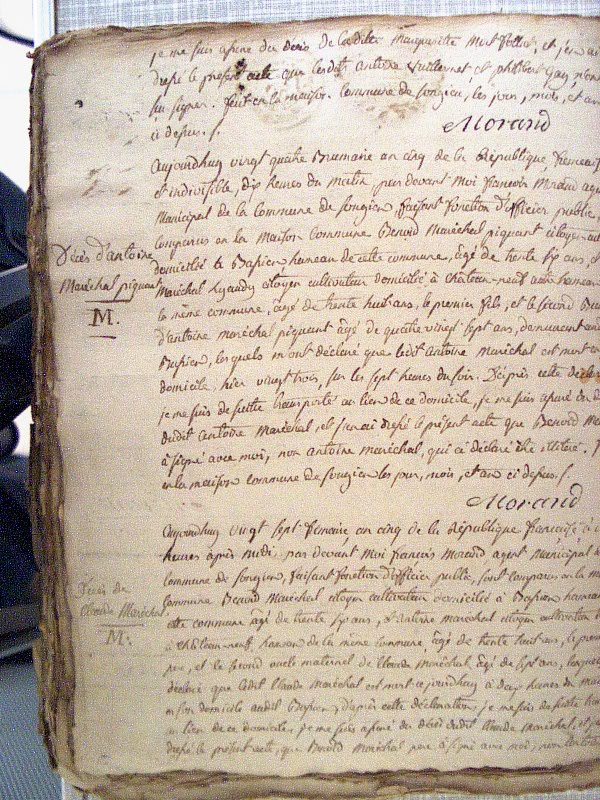 je me suis assuré du décès de ladite Marguerite et j'en ai
dressé le présent acte que lesdits antoine Vuillermet et philibert Gay n'ont
su signer. fait en la maison commune de songieu, les jour, mois, et an
ci dessus /.
Morand
Aujourdhuy vingt quatre Brumaire an cinq de la République francaise
et indivisible, dix heures du matin par devant moi francois Morand agent
Municipal de la Commune de songieu, faisant fonction d'officier public,
Comparus en la Maison Commune Benoid Maréchal piquant citoyen
domicilié à Bassieu hameau de cette commune, âgé de trente six ans, et
Maréchal citoyen cultivateur domicilié à château-neuf autre hameau
la même commune, âgé de trente huit ans, le premier fils, et le second
d'antoine maréchal piquant âgé de quatre vingt sept ans, demeurant
Bassieu, lesquels m'ont déclaré que ledit Antoine Maréchal est mort
domicile, hier vingt trois, sur les sept heures du soir. D'après cette
je me suis de suitte transporté au lieu de ce domicile, je me suis assuré du
dudit Antoine Maréchal, et j'en ai dressé le présent acte que Benoid
à signé avec moi, non antoine maréchal, qui a déclaré être illitéré.
en la maison commune de songieu les jour, mois, et an ci dessus /.
Morand
Décès d'antoine
Maréchal piquant
M.
Aujourdhuy vingt sept frimaire an cinq de la République francaise
heures après midi par devant Moi francois Morand agent Municipal
commune de songieu, faisant fonction d'officier public, sont comparus en la
commune Benoid Maréchal citoyen cultivateur domicilié à Bassieu hameau
cette commune âgé de trente six ans, et antoine marechal citoyen cultivateur
à château-neuf, hameau de la même commune, âgé de trente huit ans, le premier
père, et le second oncle maternel de Claude Maréchal, âgé de sept ans, lesquels
déclaré que ledit Claude Maréchal est mort ce jourdhuy à dix heures du
en son domicile audit Bassieu, d'après cette déclaration, je me suis de suitte
au lieu de ce domicile, je me suis assuré du décès dudit Claude Maréchal, et
dressé le présent acte, que Benoid Maréchal père à signé avec moi, non
Décès de
Claude Maréchal
M.